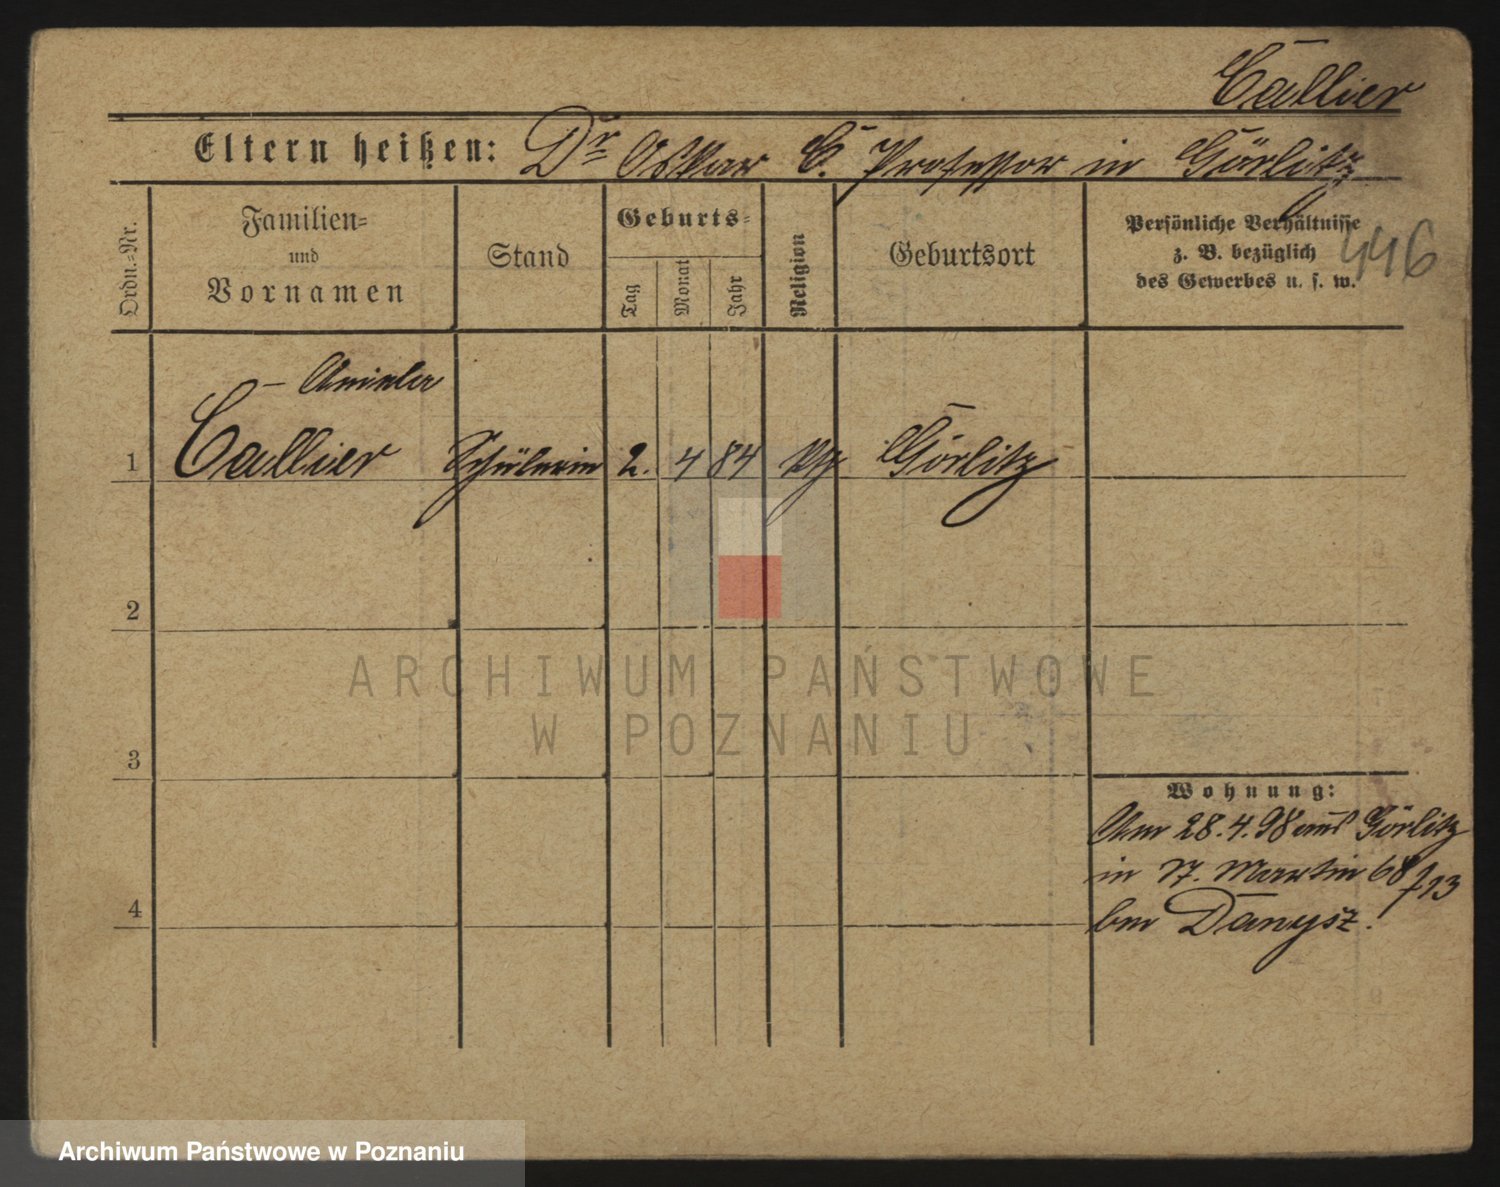 Callier
Eltern heißen: Dr Oskar C. Professor in Görlitz
Ordn.-Nr.
Familien-
und
Vornamen
Stand
Geburts-
Tag
Monat
Jahr
Religion
Geburtsort
Persönliche Verhältnisse
z. B. bezüglich
des Gewerbes u. s. w.
446
1 Callier Schülerin 2. 4 84 Görlitz
2
3
4
Wohnung:
Am 28.4.98 aus Görlitz
in N. Martin 68 f 13
bei Danysz.
ARCHIWUM PAŃSTWOWE
W POZNANIU
Archiwum Państwowe w Poznaniu